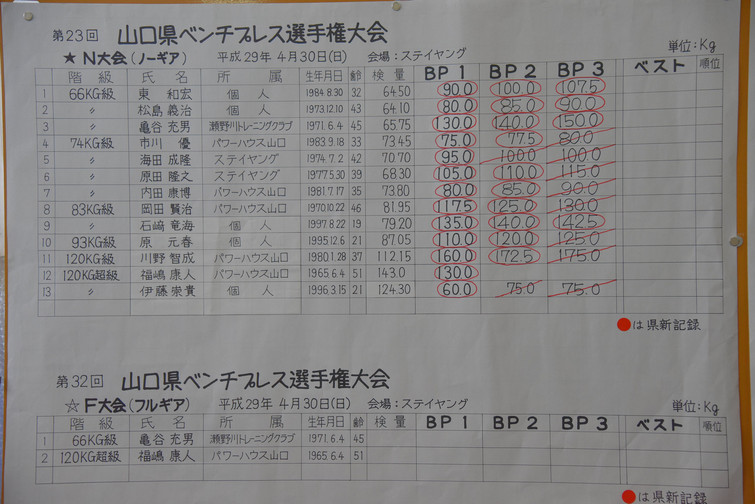 第23回 山口県ベンチプレス選手権大会
★ N大会(ノーギア) 平成29年 4月30日(日) 会場:ステイヤング 単位:Kg
階級 氏名 所属 生年月日 齢 検量 BP1 BP2 BP3 ベスト 順位
1 66KG級 東 和宏 個人 1984.8.30 32 64.50 90.0 100.0 107.5
2 〃 松島義治 個人 1973.12.10 43 64.10 80.0 85.0 90.0
3 〃 亀谷充男 瀬野川トレーニングクラブ 1971.6.4 45 65.75 130.0 140.0 150.0
4 74KG級 市川 優 パワーハウス山口 1983.9.18 33 73.45 75.0 77.5 80.0
5 〃 海田成隆 ステイヤング 1974.7.2 42 70.70 95.0 100.0 100.0
6 〃 原田隆之 ステイヤング 1977.5.30 39 68.30 105.0 110.0 115.0
7 〃 内田康博 パワーハウス山口 1981.7.17 35 73.80 80.0 85.0 90.0
8 83KG級 岡田賢治 パワーハウス山口 1970.10.22 46 81.95 117.5 125.0 130.0
9 〃 石﨑竜海 個人 1997.8.22 19 79.20 135.0 140.0 142.5
10 93KG級 原 元春 個人 1995.12.6 21 87.05 110.0 120.0 125.0
11 120KG級 川野智成 パワーハウス山口 1980.1.28 37 112.15 160.0 172.5 175.0
12 120KG超級 福嶋康人 パワーハウス山口 1965.6.4 51 143.0 130.0
13 〃 伊藤崇貴 個人 1996.3.15 21 124.30 60.0 75.0 75.0
●は県新記録
第32回 山口県ベンチプレス選手権大会
☆ F大会(フルギア) 平成29年 4月30日(日) 会場:ステイヤング 単位:Kg
階級 氏名 所属 生年月日 齢 検量 BP1 BP2 BP3 ベスト 順位
1 66KG級 亀谷充男 瀬野川トレーニングクラブ 1971.6.4 45
2 120KG超級 福嶋康人 パワーハウス山口 1965.6.4 51
●は県新記録